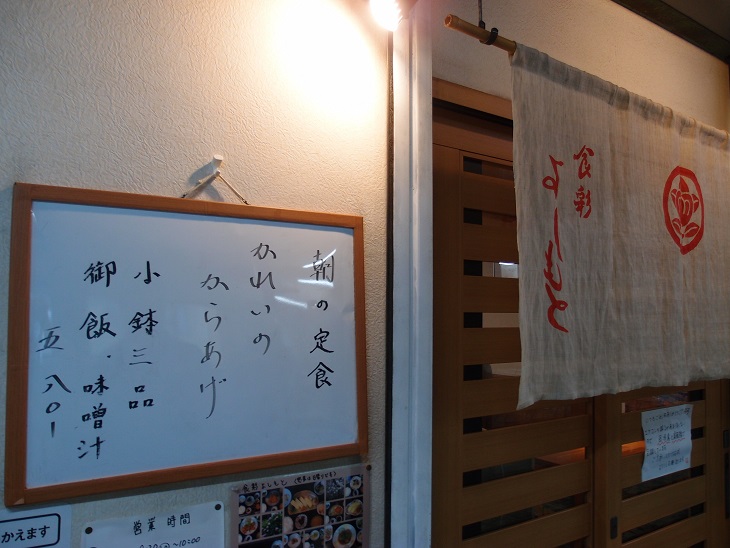 朝の定食
かれいの
からあげ
小鉢三品
御飯・味噌汁
五八〇ー
食彩
よしもと
かえます
営業時間
～10:00